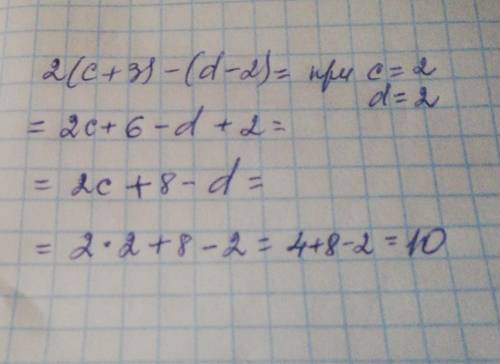 2(c+3)-(d-2)= при c=2
d=2
= 2c+6-d+2=
= 2c+8-d=
= 2·2+8-2=4+8-2=10